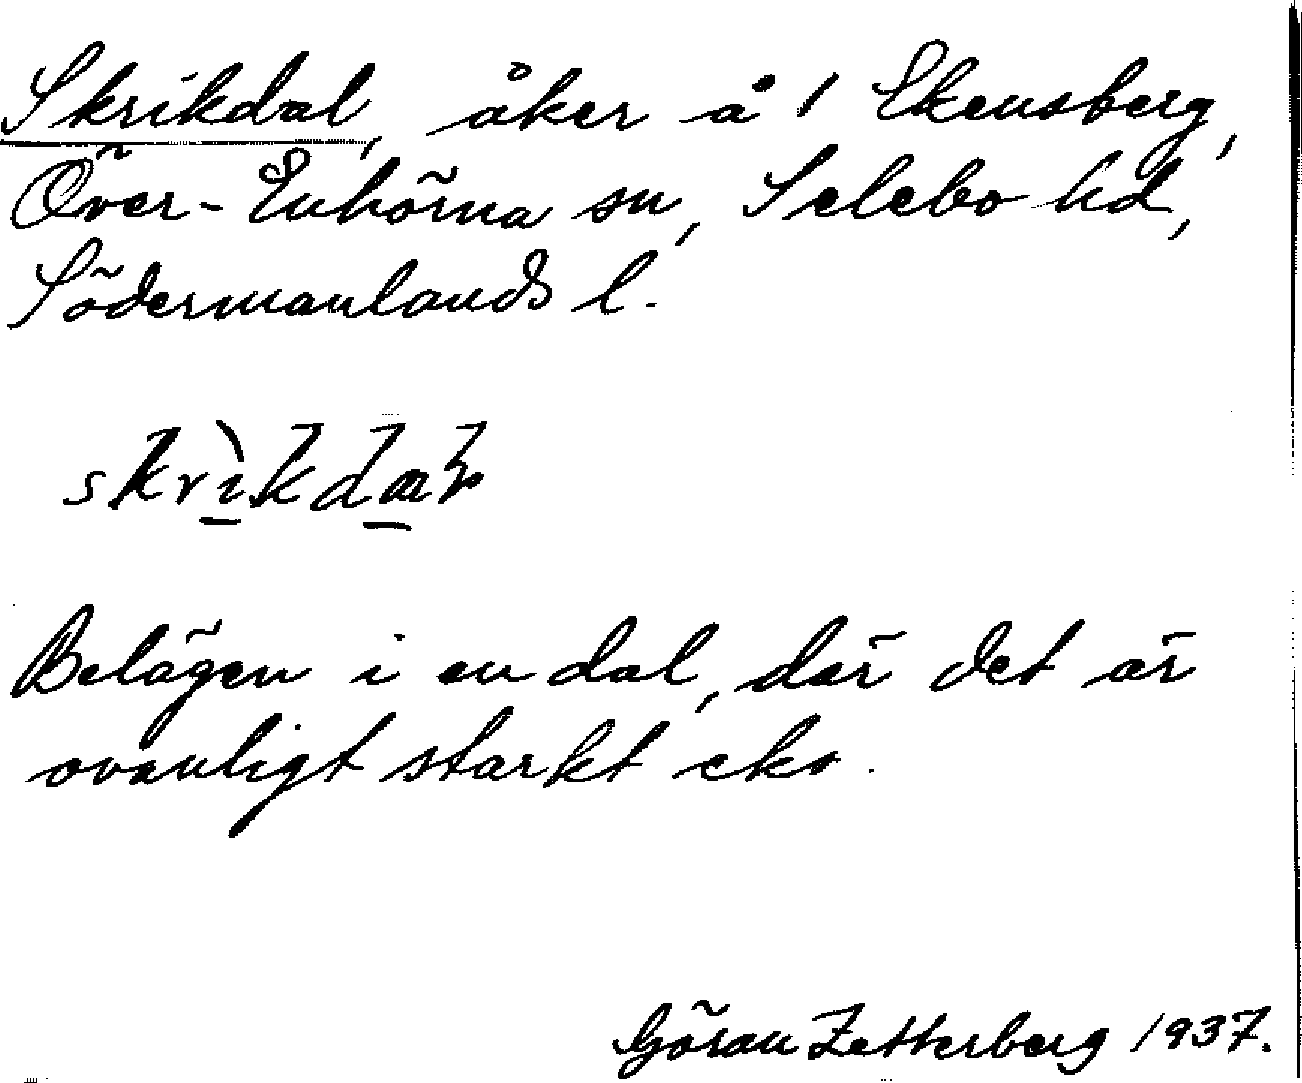 Skrikdal, åker å 1 Ekensberg,
Över-Enhörna sn, Selebo hd,
Södermanlands l.
skrìkdaɽ
Belägen i en dal, där det är
ovanligt starkt eko.
Göran Zetterberg 1937.